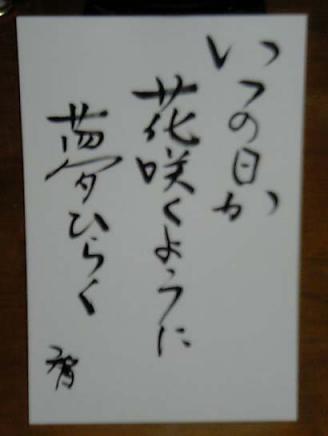 いつの日か
花咲くように
夢ひらく